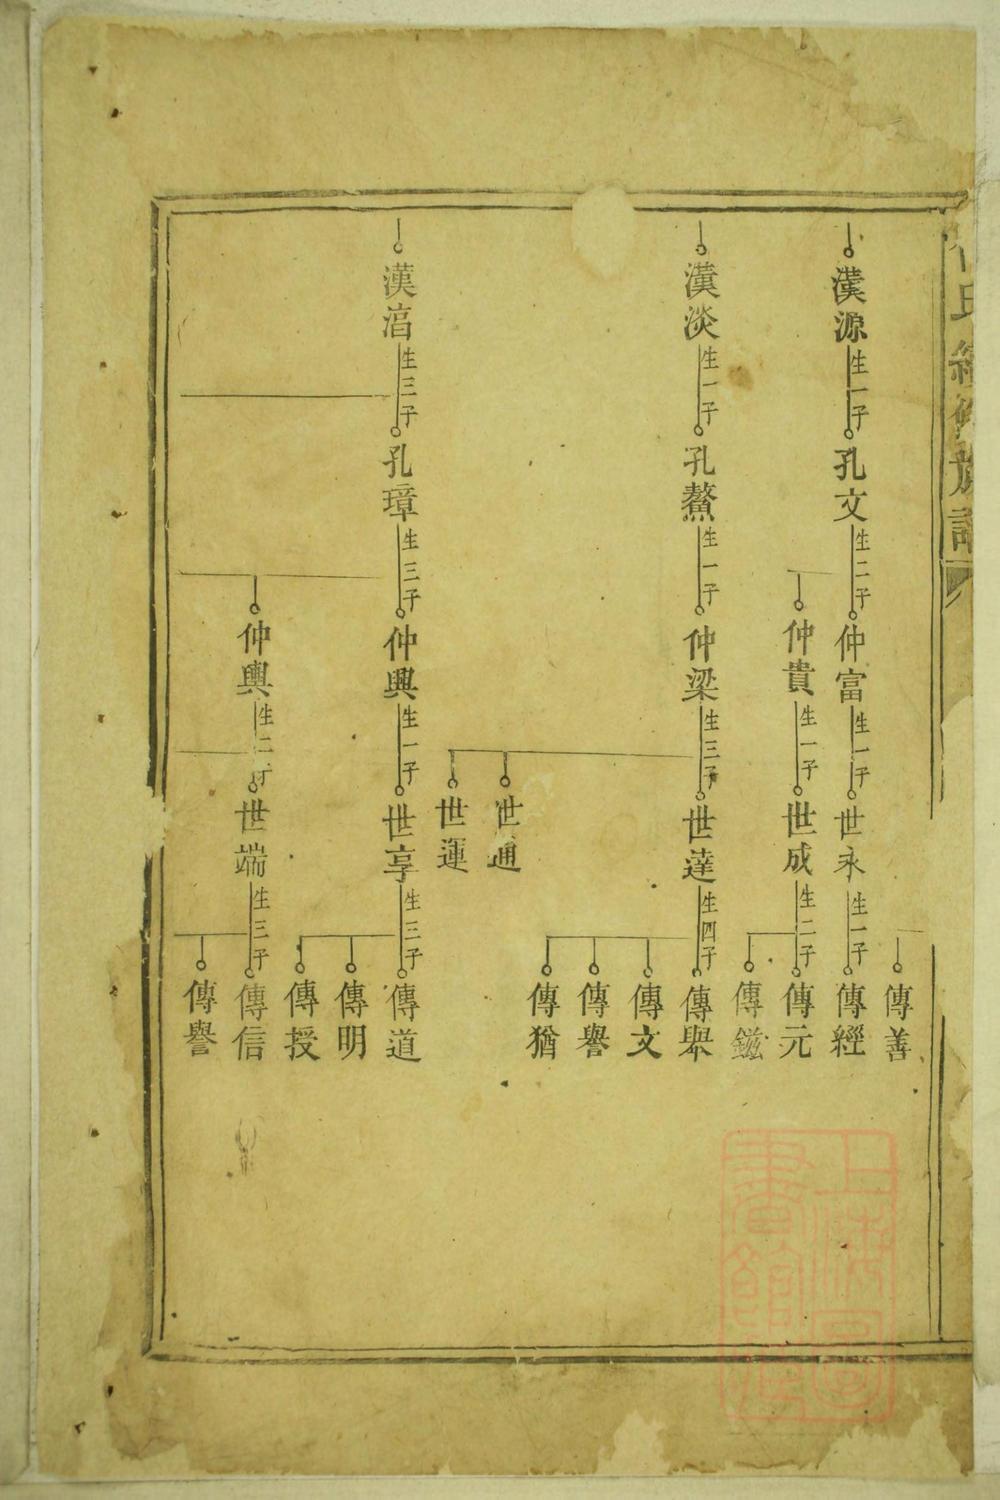 氏續修族譜
漢源生一子孔文生二子仲富生一子世永生一子傳經
傳善
仲貴生一子世成生二子傳元
傳鎡
漢淡生一子孔鰲生一子仲梁生三子世達生四子傳舉
傳文
傳譽
傳猶
世通
世運
漢湻生三子孔璋生三子仲興生一子世享生三子傳道
傳明
傳授
仲輿生二子世端生三子傳信
傳譽
上海圖
書館藏